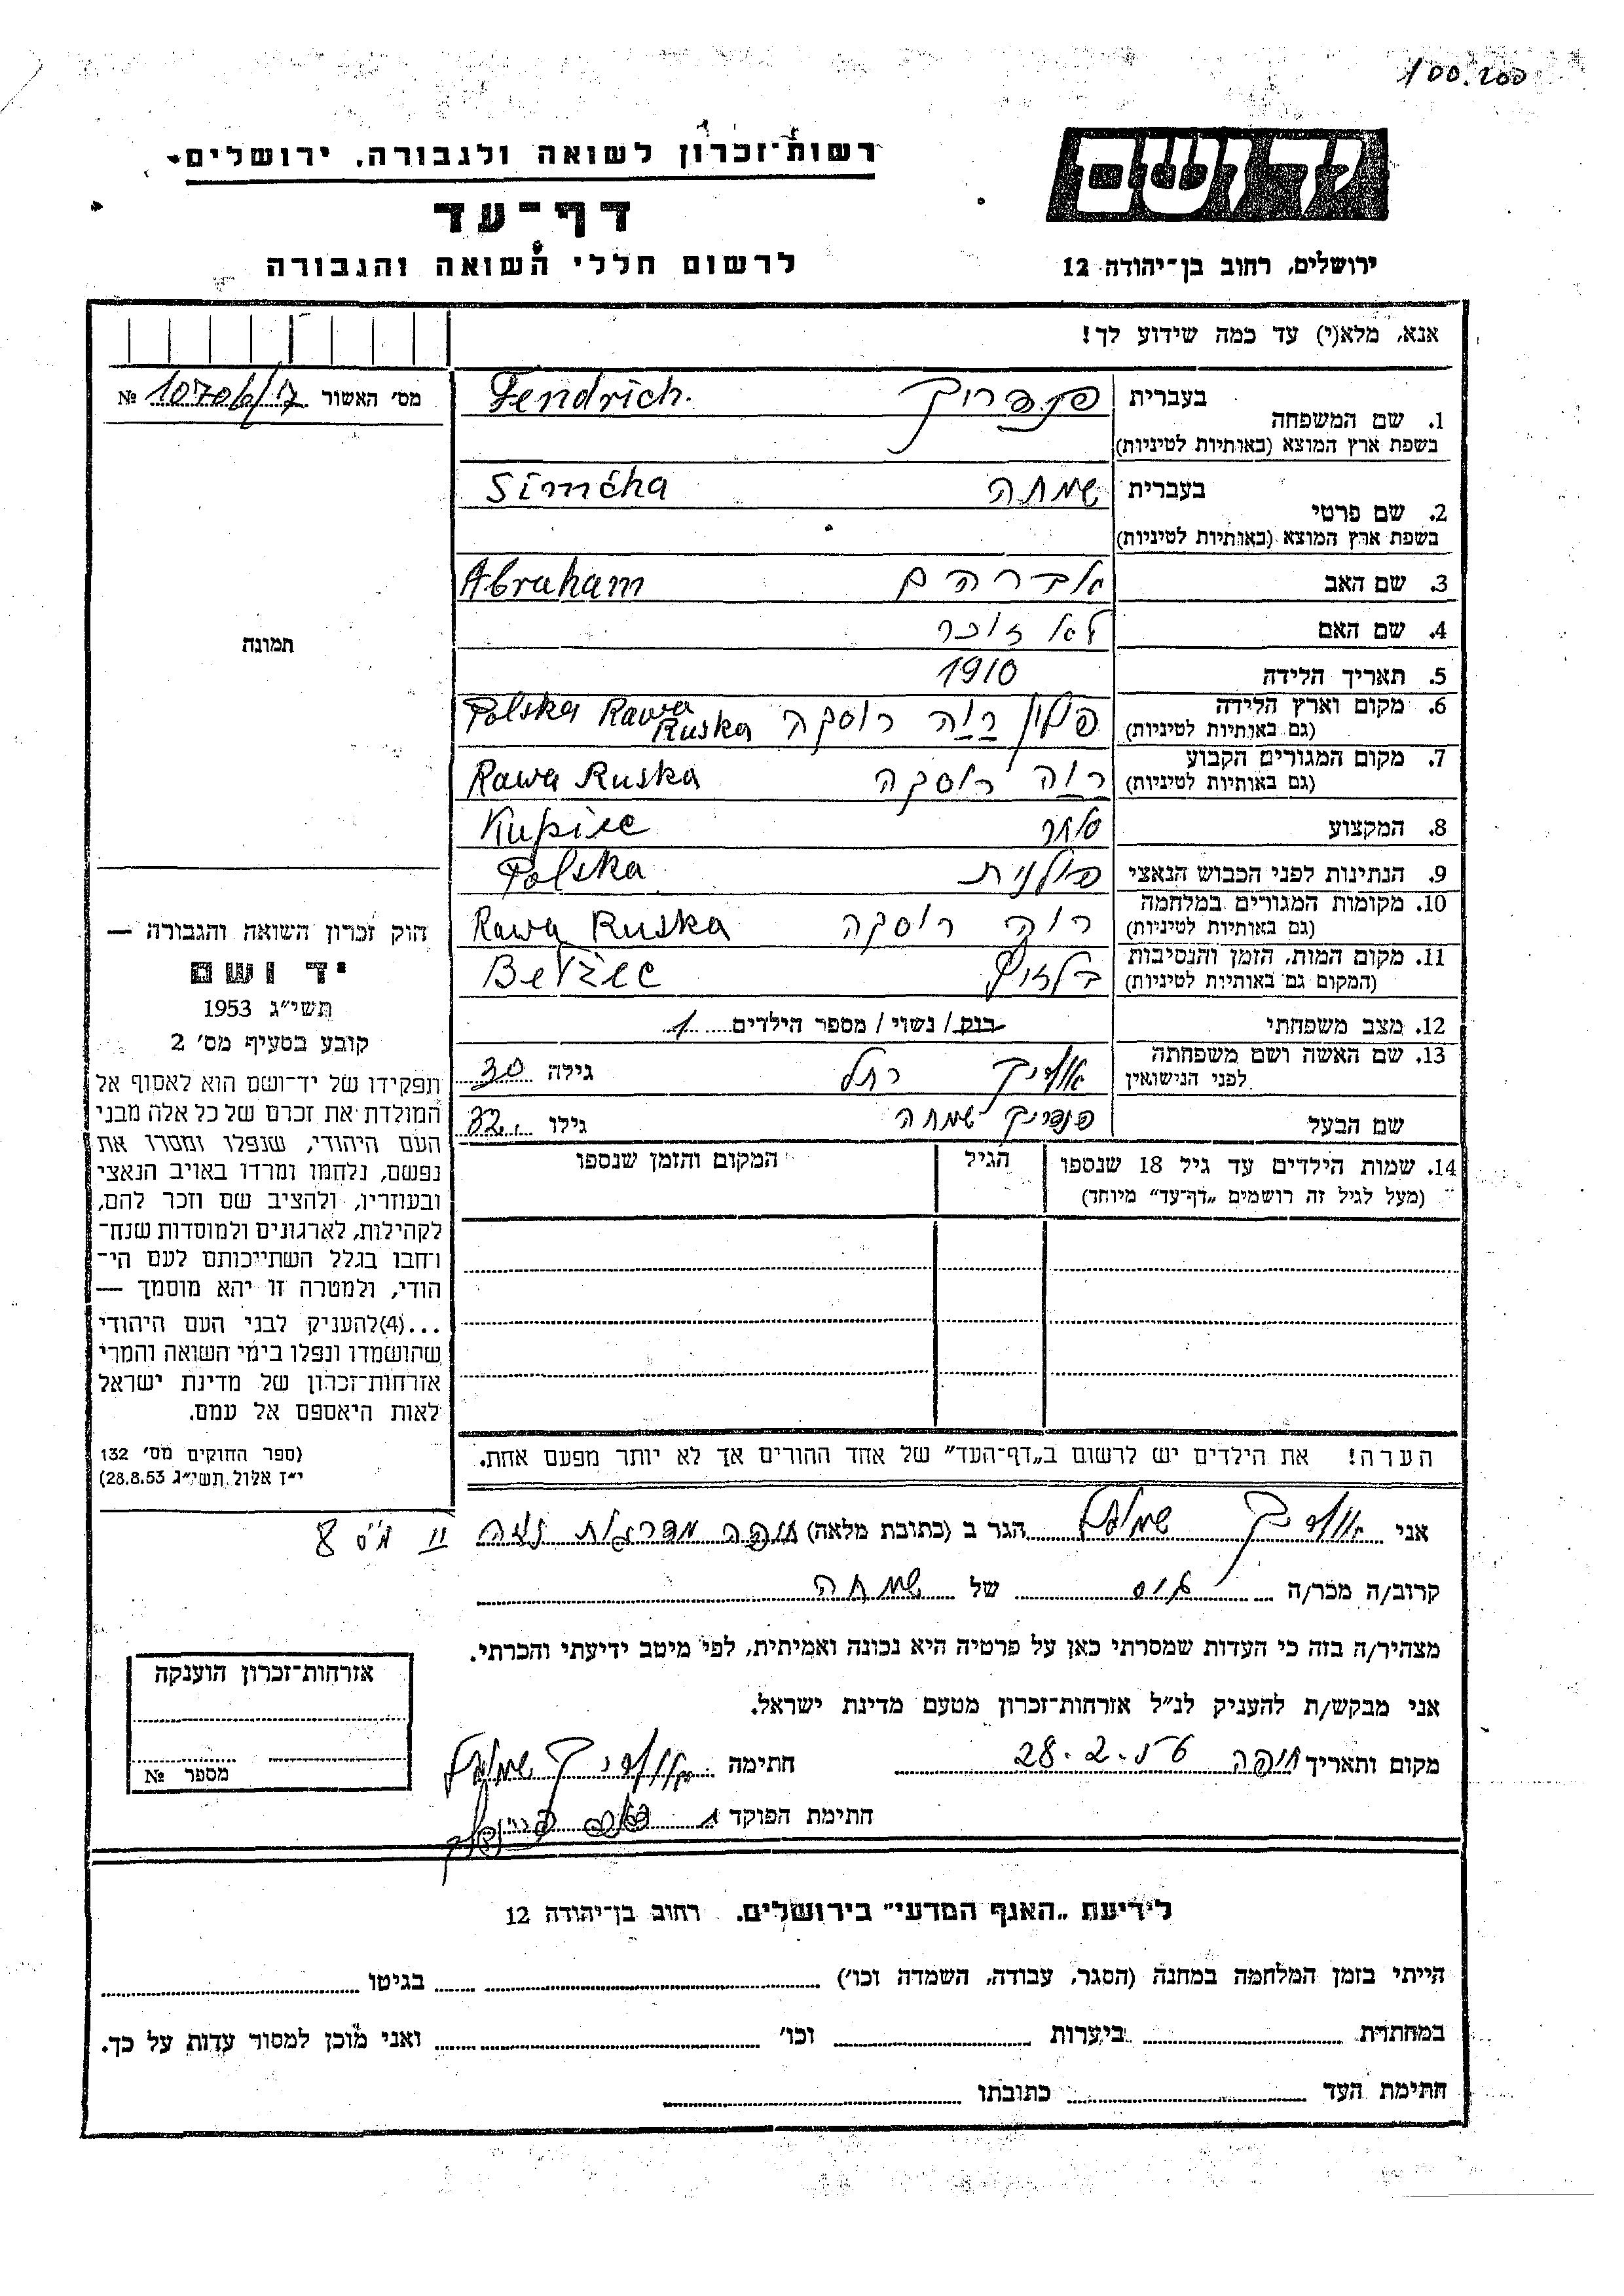 100.200
רשות־זכרון לשואה ולגבורה, ירושלים
דף־עד
לרשום חללי השואה והגבורה
יד ושם
ירושלים, רחוב בן־יהודה 12
אנא, מלא(י) עד כמה שידוע לך!
מס׳ האשור №
1. שם המשפחה
בעברית פנדריך Fendrich.
בשפת ארץ המוצא (באותיות לטיניות)
2. שם פרטי
בעברית שמחה Simcha
בשפת ארץ המוצא (באותיות לטיניות)
3. שם האב אברהם Abraham
4. שם האם לא זוכר
5. תאריך הלידה 1910
6. מקום וארץ הלידה פולין רוה רוסקה Polska Rawa Ruska
(גם באותיות לטיניות)
7. מקום המגורים הקבוע רוה רוסקה Rawa Ruska
(גם באותיות לטיניות)
8. המקצוע סוחר Kupiec
9. הנתינות לפני הכבוש הנאצי פולנית Polska
10. מקומות המגורים במלחמה רוה רוסקה Rawa Ruska
(גם באותיות לטיניות)
11. מקום המות, הזמן והנסיבות בלזיץ Bełżec
(המקום גם באותיות לטיניות)
12. מצב משפחתי רווק / נשוי / מספר הילדים 1
13. שם האשה ושם משפחתה רחל גילה 30
לפני הנישואין
שם הבעל פנדריך שמחה גילו 32
14. שמות הילדים עד גיל 18 שנספו הגיל המקום והזמן שנספו
(מעל לגיל זה רושמים „דף־עד״ מיוחד)
הערה! את הילדים יש לרשום ב„דף־העד״ של אחד ההורים אך לא יותר מפעם אחת.
תמונה
חוק זכרון השואה והגבורה —
יד ושם
תשי״ג 1953
קובע בסעיף מס׳ 2
תפקידו של יד־ושם הוא לאסוף אל
המולדת את זכרם של כל אלה מבני
העם היהודי, שנפלו ומסרו את
נפשם, נלחמו ומרדו באויב הנאצי
ובעוזריו, ולהציב שם וזכר להם,
לקהילות, לארגונים ולמוסדות שנח־
רחבו בגלל השתייכותם לעם הי־
הודי, ולמטרה זו יהא מוסמך —
...(4)להעניק לבני העם היהודי
שהושמדו ונפלו בימי השואה והמרי
אזרחות־זכרון של מדינת ישראל
לאות היאספם אל עמם.
(ספר החוקים מס׳ 132
י״ז אלול תשי״ג 28.8.53)
אני הגר ב (כתובת מלאה) חיפה
קרוב/ה מכר/ה גיס של שמחה
מצהיר/ה בזה כי העדות שמסרתי כאן על פרטיה היא נכונה ואמיתית, לפי מיטב ידיעתי והכרתי.
אני מבקש/ת להעניק לנ״ל אזרחות־זכרון מטעם מדינת ישראל.
מקום ותאריך חיפה 28.2. חתימה
חתימת הפוקד
אזרחות־זכרון הוענקה
מספר №
לידיעת „האגף המדעי״ בירושלים. רחוב בן־יהודה 12
הייתי בזמן המלחמה במחנה (הסגר, עבודה, השמדה וכו׳) בגיטו
במחתרת ביערות וכו׳ ואני מוכן למסור עדות על כך.
חתימת העד כתובתו